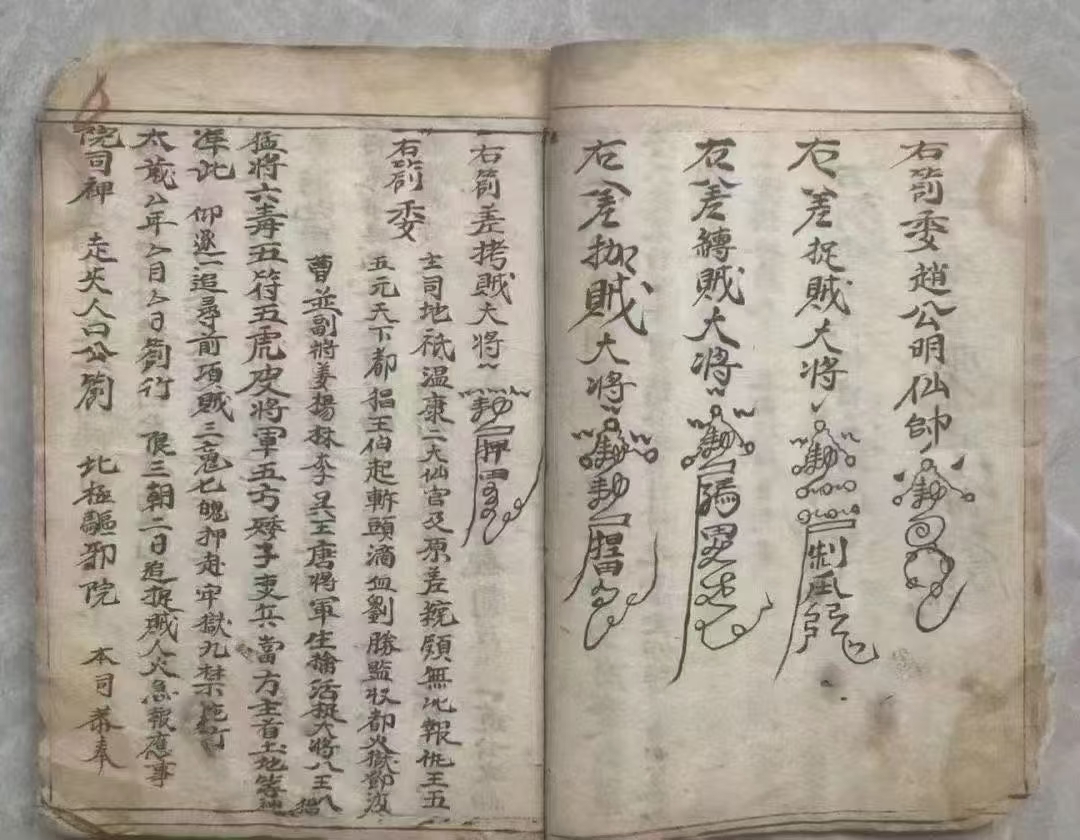 右箚委趙公明仙帥
右差捉賊大將
右差縛賊大將
右差枷賊大將
右箚差拷賊大將
右箚委
主司地祇温康二大仙官及原差 無 報 王五
五元天下都 王伯起斬頭滴血劉勝監收都火獄
曹並副將姜楊林李吳王唐將軍生擒活捉大將八王
猛將六毒五符五虎皮將軍五方 子吏兵當方主首土地等神
准此 仰逐一追尋前項賊三魂七魄押赴牢獄九禁施行
太歲厶年厶月厶日箚行 限三朝二日追捉賊人火急報應事
院司牌 走失人口公箚 北極驅邪院 本司恭奉